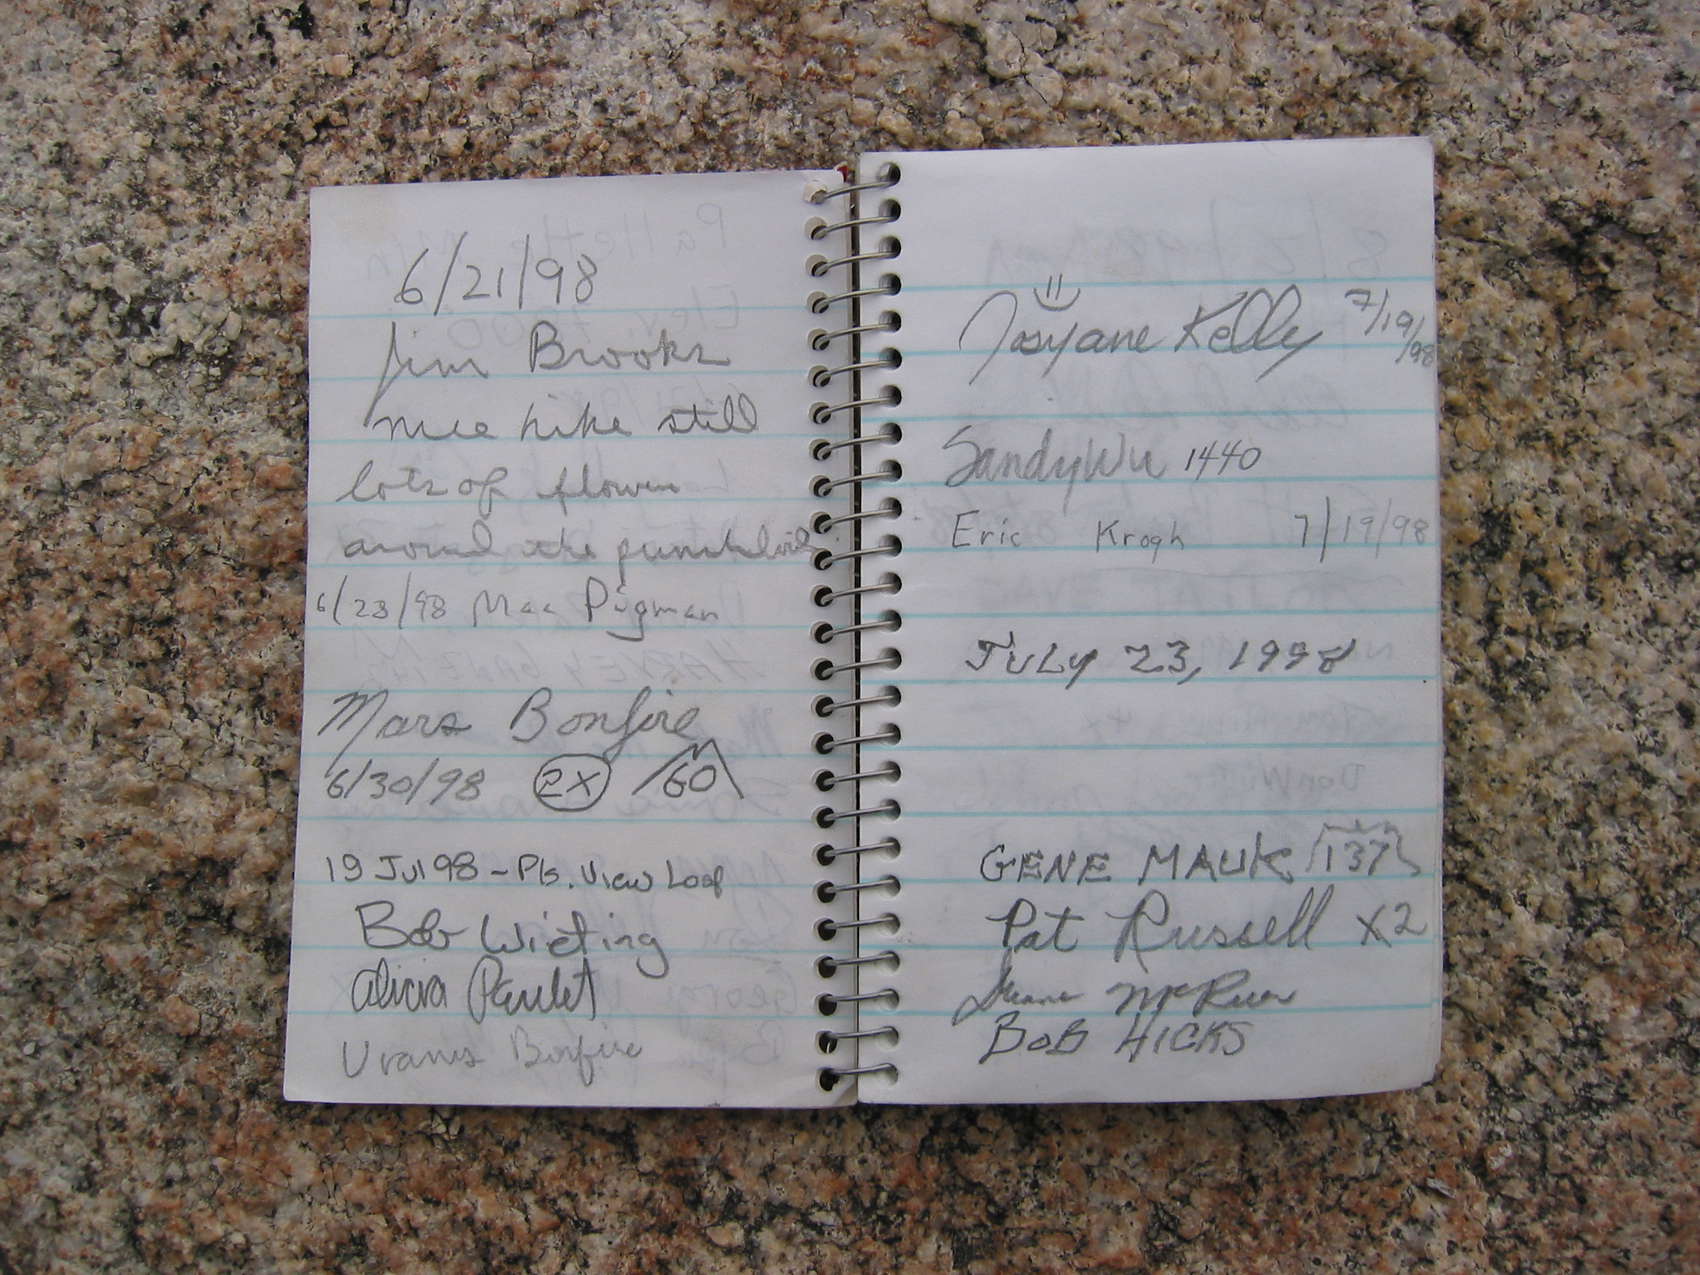 6/21/98
Jim Brooks
nice hike still
lots of flowers
around the punchbowl
6/23/98 Mac Pigman
Mars Bonfire
6/30/98 2X 60
19 Jul 98 - Pls. View Loop
Bob Wieting
Alicia Paulet
Uranus Bonfire
Josyane Kelly 7/19/98
Sandy Wu 1440
Eric Krogh 7/19/98
JULY 23, 1998
GENE MAUK 137
Pat Russell X2
Duane McRuer
BOB HICKS